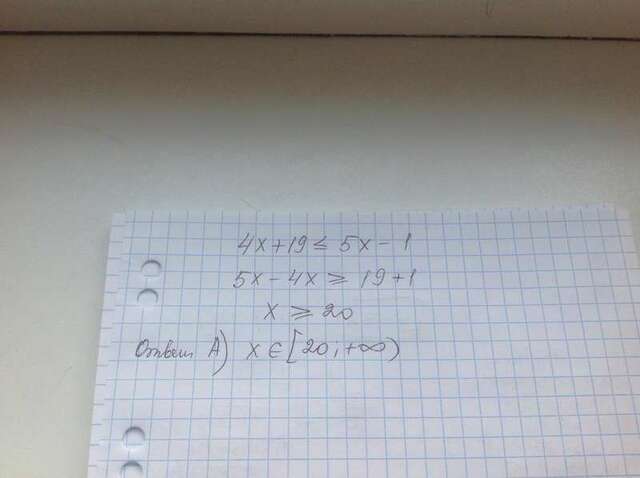 4x+19 ≤ 5x-1
5x-4x ≥ 19+1
x ≥ 20
Ответ A) x ∈ [20, +∞)